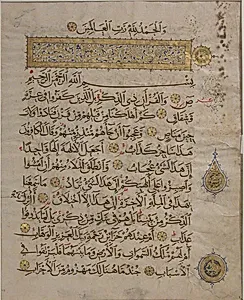 والحمد لله رب العالمين
بسم الله الرحمن الرحيم
ص والقرآن ذي الذكر بل الذين كفروا في عزة
وشقاق كم أهلكنا من قبلهم من قرن فنادوا ولات
حين مناص وعجبوا أن جاءهم منذر منهم وقال الكافرون
هذا ساحر كذاب أجعل الآلهة إلها واحدا
إن هذا لشيء عجاب وانطلق الملأ منهم أن امشوا
واصبروا على آلهتكم إن هذا لشيء يراد ما سمعنا بهذا
في الملة الآخرة إن هذا إلا اختلاق أأنزل عليه
الذكر من بيننا بل هم في شك من ذكري بل لما يذوقوا
عذاب أم عندهم خزائن رحمة ربك العزيز الوهاب أم
لهم ملك السموات والأرض وما بينهما فليرتقوا في
الأسباب جند ما هنالك مهزوم من الأحزاب